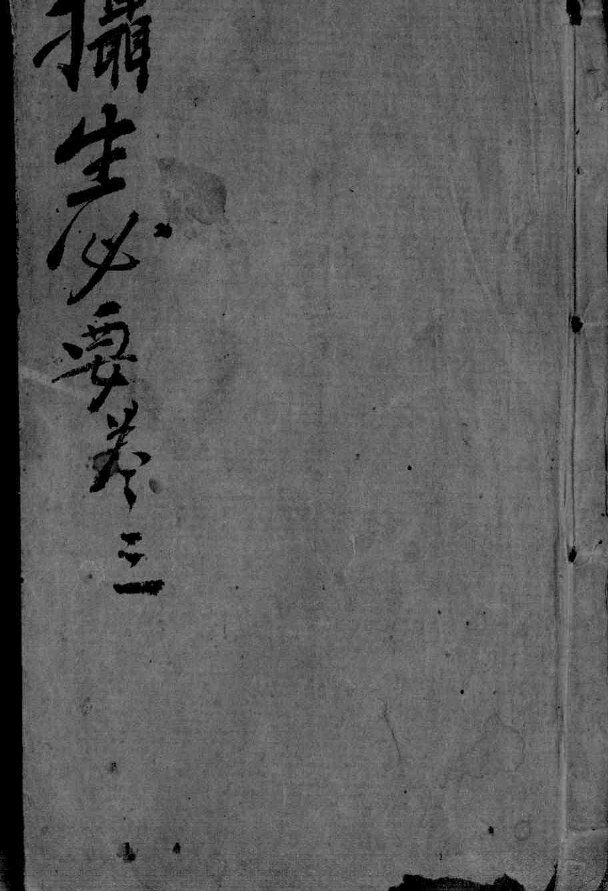 攝生必要卷三